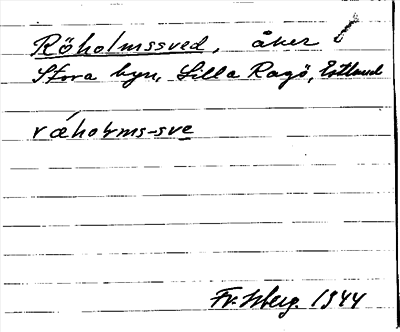 Röholmssved, åker
Stora byn, Lilla Ragö, Estland
rǽholms-sve
Fr. Isberg. 1944